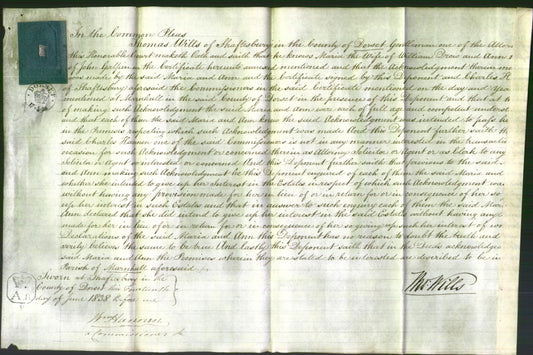 In the Common Pleas
Thomas Wills of Shaftesbury in the County of Dorset Gentleman one of the
this Honorable Court maketh Oath and saith that he knows Maria the Wife of William and Ann
of John the Certificate hereunto annexed mentioned and that the Acknowledgment therein
was made by the said Maria and Ann and the Certificate signed by this Deponent and Charles
of Shaftesbury aforesaid the Commissioners in the said Certificate mentioned on the day and Year
at Marnhull in the said County of Dorset in the presence of this Deponent and that at the
of making such Acknowledgment the said Maria and Ann were each of full age and competent understand
and that each of them the said Maria and Ann knew the said Acknowledgment was intended to pass
in the Premises respecting which such Acknowledgment was made And this Deponent further saith
said Charles Hannen one of the said Commissioners is not in any manner interested in the transaction
occasion for such Acknowledgment or concerned therein as Attorney Solicitor or Agent or as Clerk to any
Solicitor or Agent so interested or concerned And this Deponent further saith that previous to the said
Ann making such Acknowledgment he this Deponent inquired of each of them the said Maria and
whether she intended to give up her interest in the Estates in respect of which such Acknowledgment
without having any provision made for her in lieu of or in return for or in consequence of her so
up her interest in such Estates and that in answer to such enquiry each of them the said Maria
Ann declared that she did intend to give up her interest in the said Estates without having any
made for her in lieu of or in return for or in consequence of her so giving up such her interest of
Declarations of the said Maria and Ann this Deponent has no reason to doubt the truth and
verily believes the same to be true And lastly this Deponent saith that in the Deeds acknowledged
said Maria and Ann the Premises wherein they are stated to be interested are described to be in
Parish of Marnhull aforesaid
Sworn at Shaftesbury in the
County of Dorset this
day of June 1838 Before me
Wm Hannen
a Commissioner
Tho Wills